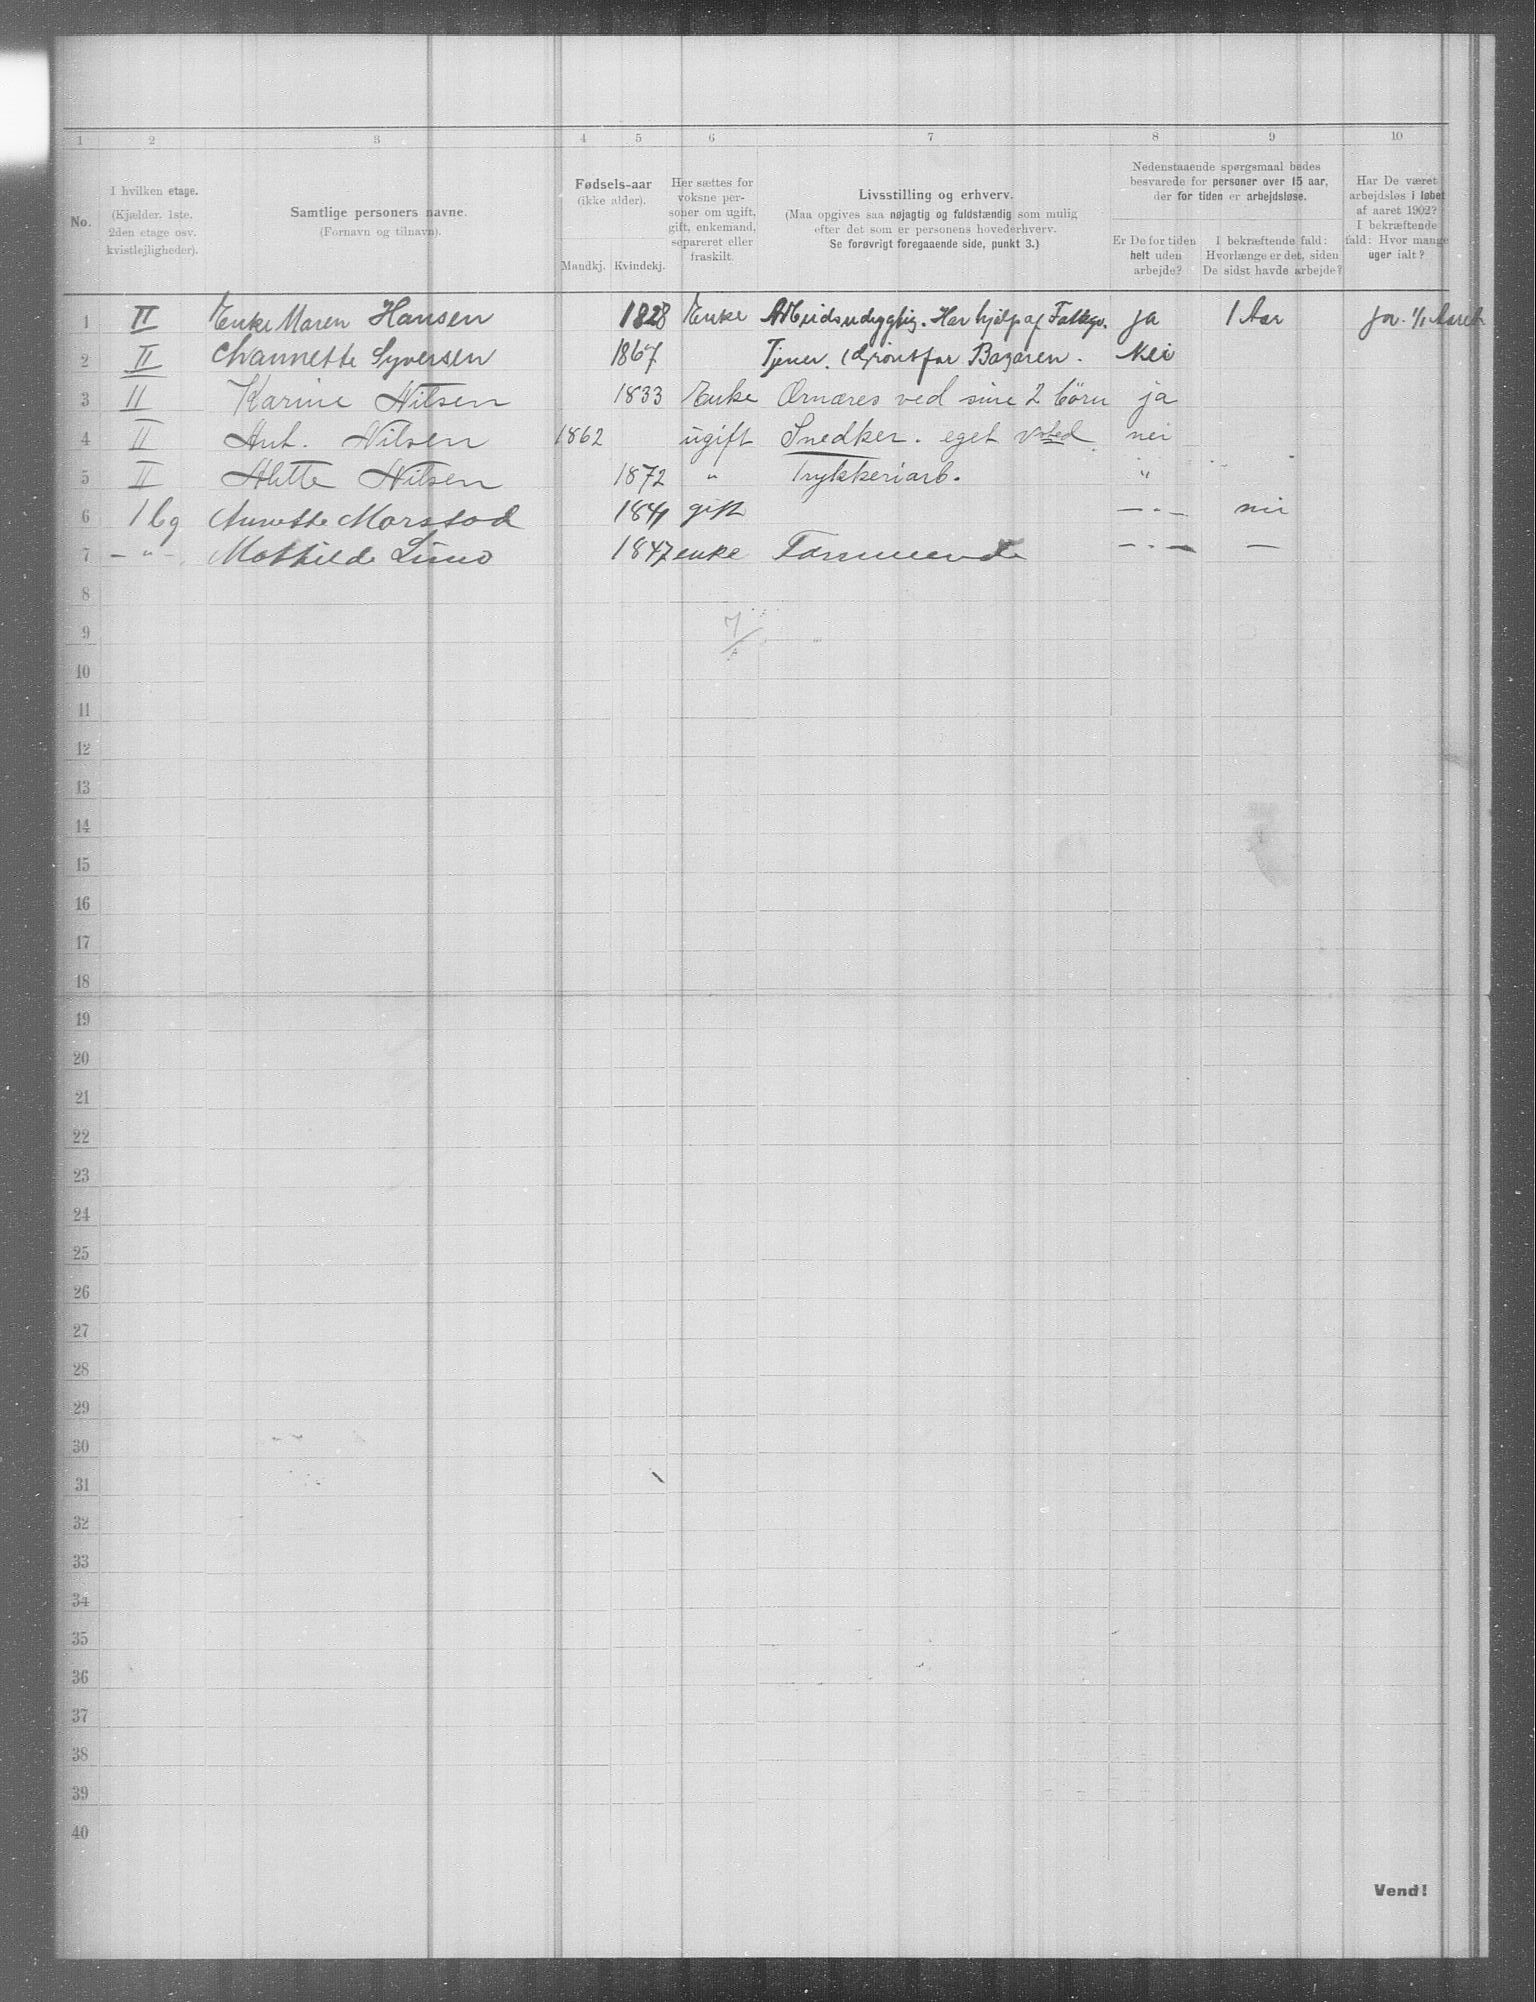 1 2 3 4 5 6 7 8 9 10
No.
I hvilken etage.
(Kjælder. 1ste.
2den etage osv.
kvistlejligheder).
Samtlige personers navne.
(Fornavn og tilnavn).
Fødsels-aar
(ikke alder).
Mandkj. Kvindekj.
Her sættes for
voksne per-
soner om ugift,
gift, enkemand,
separeret eller
fraskilt.
Livsstilling og erhverv.
(Maa opgives saa nøjagtig og fuldstændig som mulig
efter det som er personens hovederhverv.
Se forøvrigt foregaaende side, punkt 3.)
Nedenstaaende spørgsmaal bedes
besvarede for personer over 15 aar,
der for tiden er arbejdsløse.
Er De for tiden
helt uden
arbejde?
I bekræftende fald:
Hvorlænge er det, siden
De sidst havde arbejde?
Har De været
arbejdsløs i løbet
af aaret 1902?
I bekræftende
fald: Hvor mange
uger ialt?
1 II Enke Maren Hansen 1828 Enke Arbeidsudygtig. Har hjelp af Fattigv. ja 1 Aar ja. 1/1 Aaret
2 II Syversen 1867 Tjener. Bazaren. Nei
3 II Karine Nilsen 1833 Enke Ernæres ved sine 2 börn ja
4 II Ant. Nilsen 1862 ugift Snedker. eget vsted nei
5 II Alette Nilsen 1872 " Trykkeriarb. "
6 1 bg Annette Morstad 1841 gift — " — nei
7 — " — Mathilde 1847 enke — " — —
8
7/
9
10
11
12
13
14
15
16
17
18
19
20
21
22
23
24
25
26
27
28
29
30
31
32
33
34
35
36
37
38
39
40
Vend!